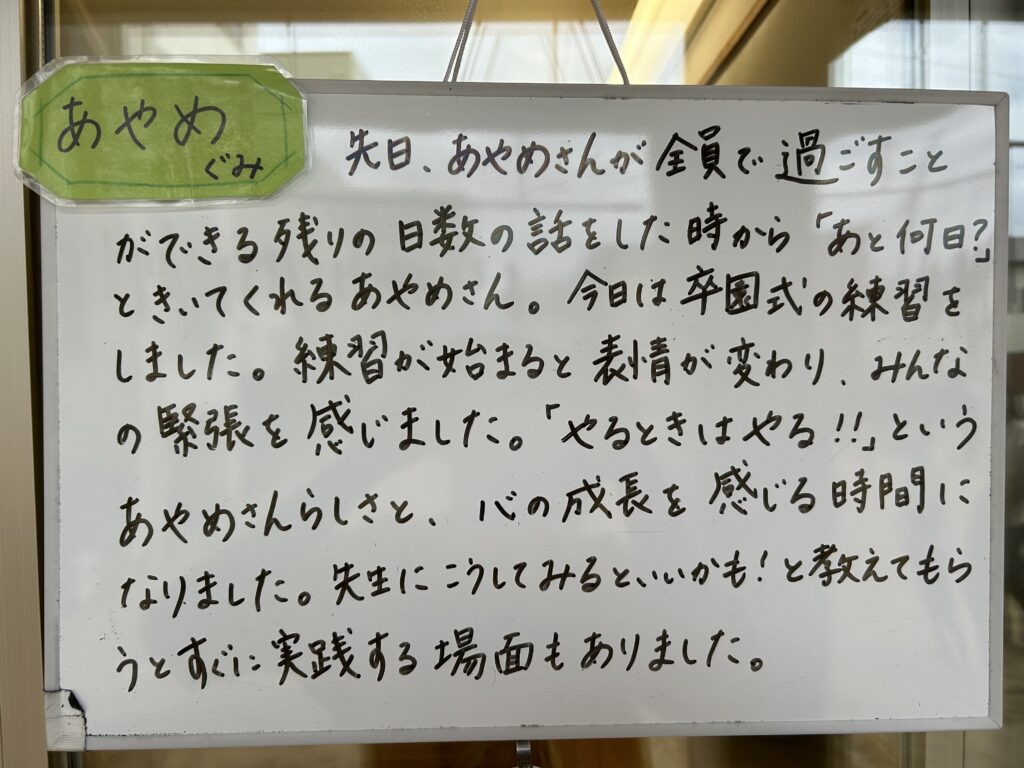 あやめ
ぐみ
先日、あやめさんが全員で過ごすこと
ができる残りの日数の話をした時から「あと何日?」
ときいてくれるあやめさん。今日は卒園式の練習を
しました。練習が始まると表情が変わり、みんな
の緊張を感じました。「やるときはやる!!」という
あやめさんらしさと、心の成長を感じる時間に
なりました。先生にこうしてみるといいかも!と教えてもら
うとすぐに実践する場面もありました。